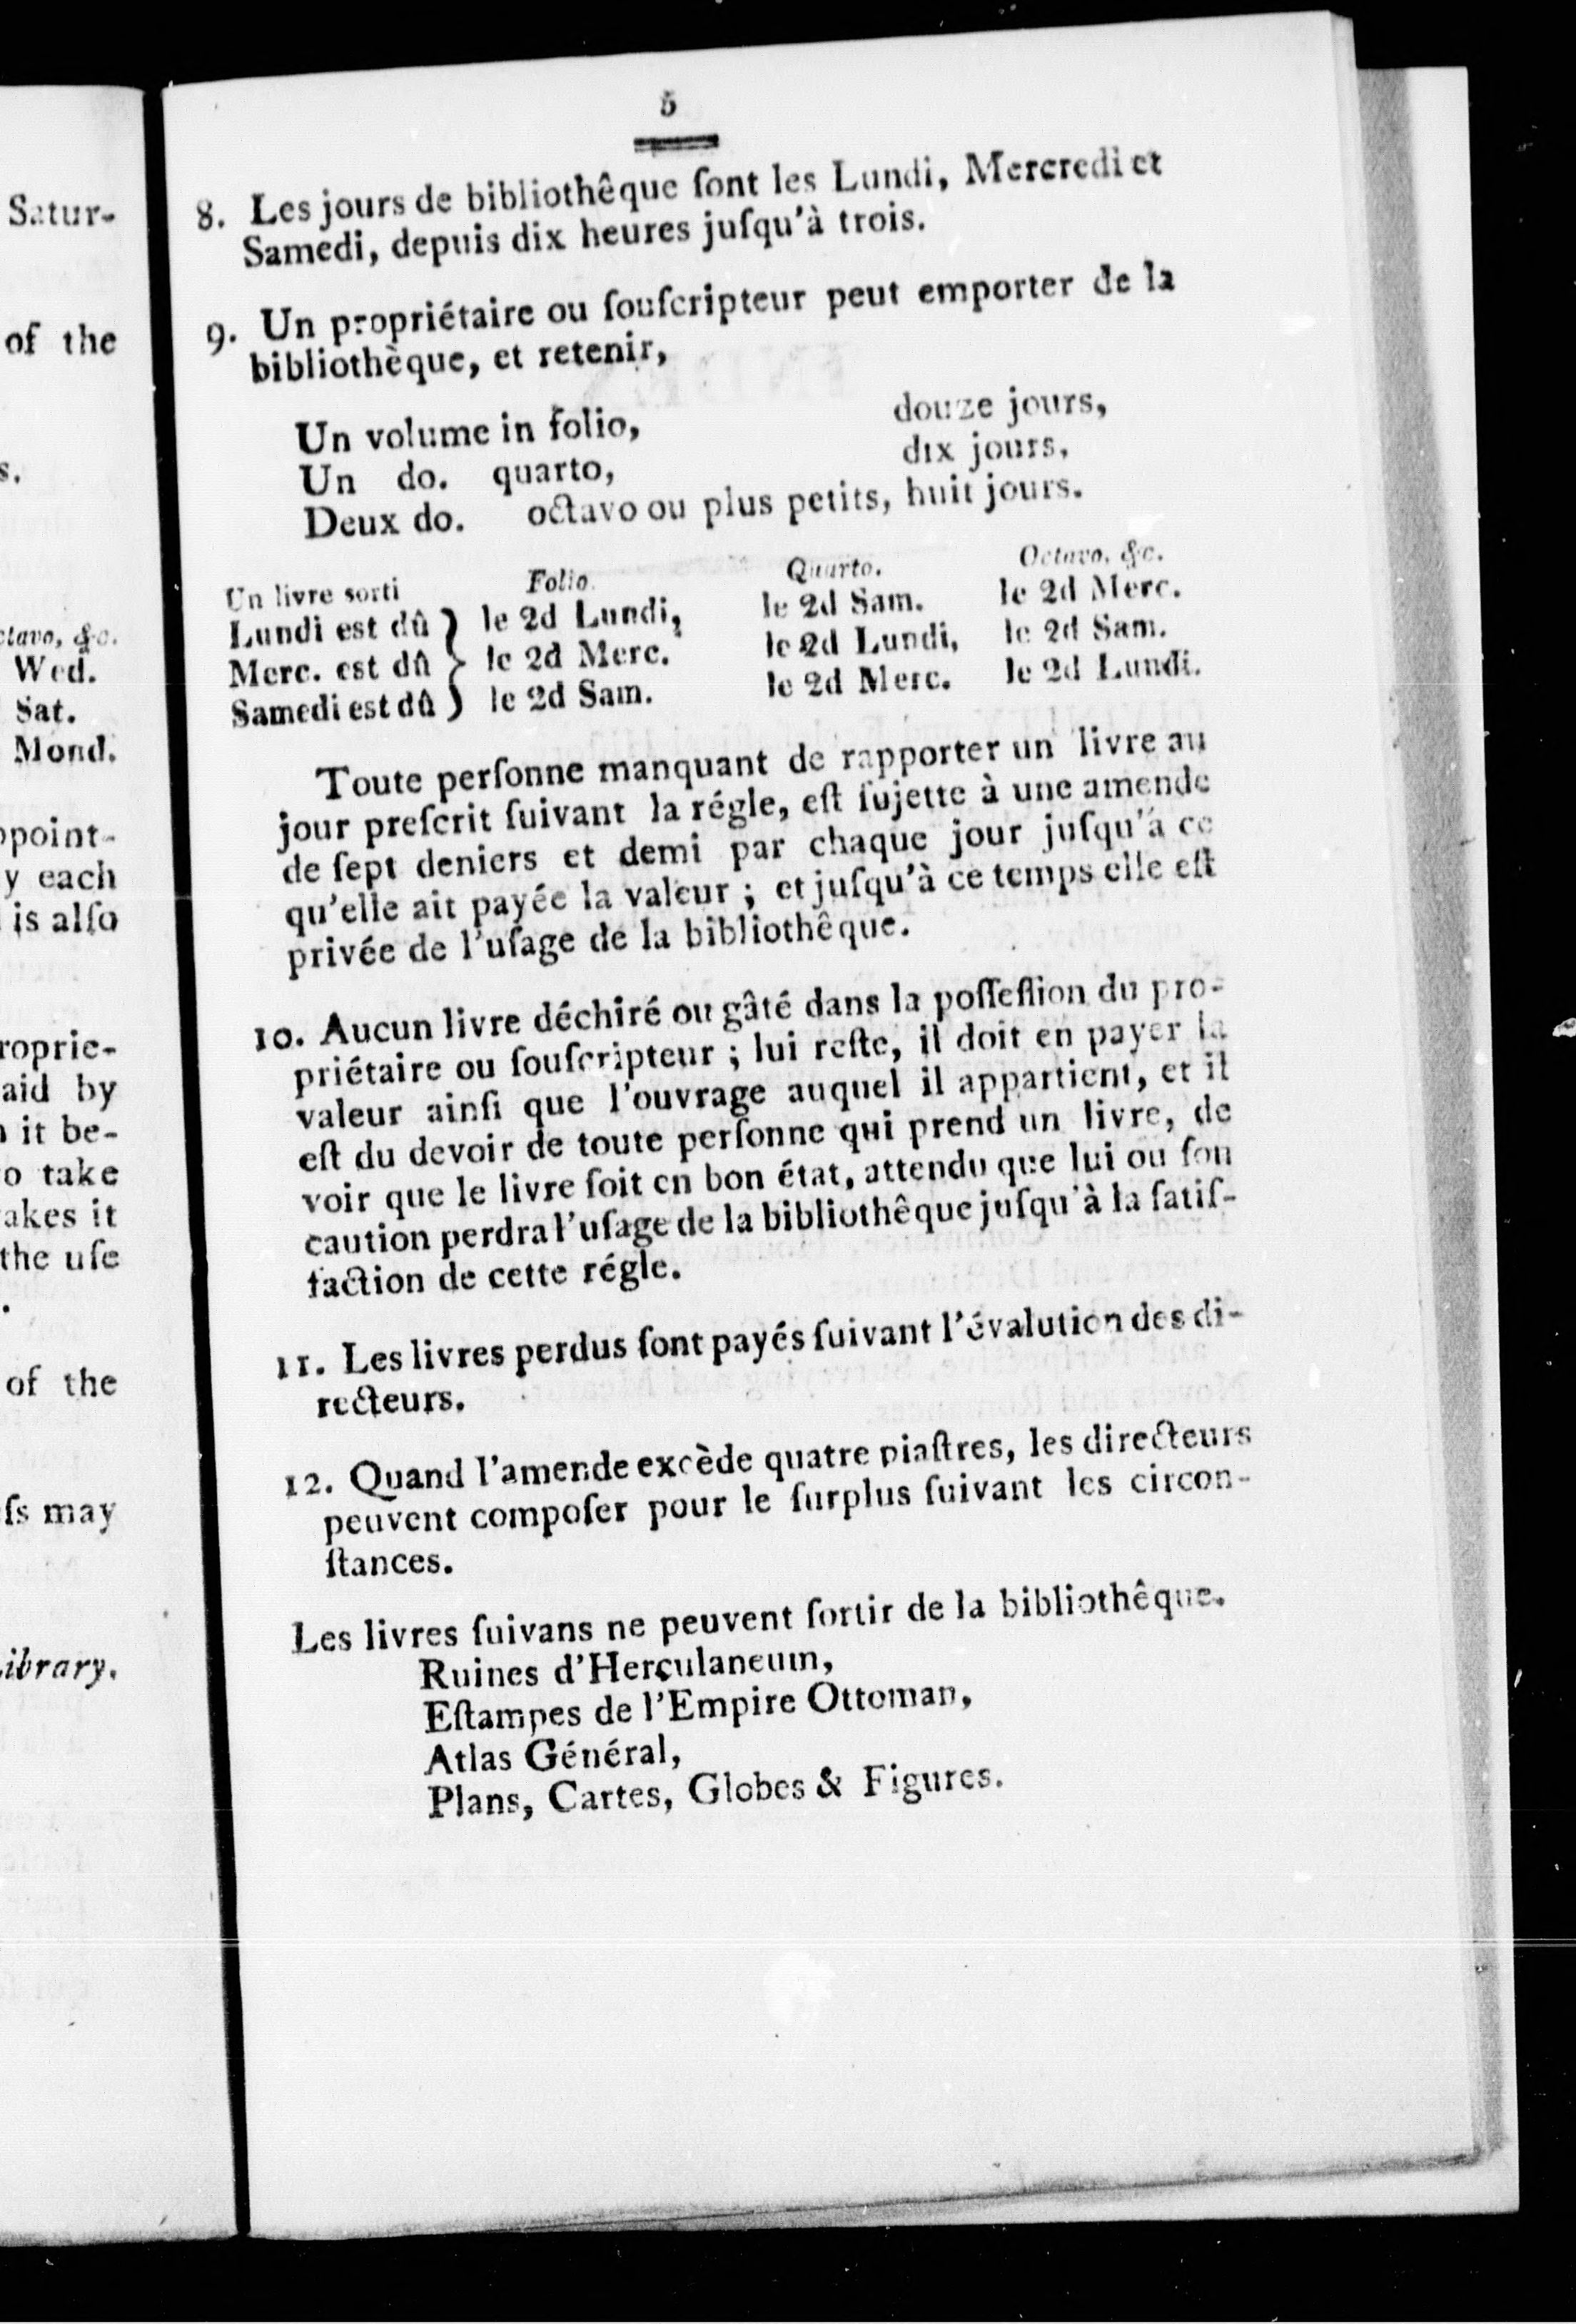 Satur-
of the
s.
ctavo, &c.
Wed.
Sat.
Mond.
ppoint-
y each
is alſo
roprie-
aid by
it be-
o take
akes it
the uſe
of the
ſs may
ibrary.
5
8. Les jours de bibliothêque ſont les Lundi, Mercredi et
Samedi, depuis dix heures juſqu'à trois.
9. Un propriétaire ou ſouſcripteur peut emporter de la
bibliothèque, et retenir,
Un volume in folio, douze jours,
Un do. quarto, dix jours,
Deux do. octavo ou plus petits, huit jours.
Un livre sorti Folio. Quarto. Octavo, &c.
Lundi est dû } le 2d Lundi, le 2d Sam. le 2d Merc.
Merc. est dû } le 2d Merc. le 2d Lundi, le 2d Sam.
Samedi est dû } le 2d Sam. le 2d Merc. le 2d Lundi.
Toute perſonne manquant de rapporter un livre au
jour preſcrit ſuivant la régle, eſt ſujette à une amende
de ſept deniers et demi par chaque jour juſqu'à ce
qu'elle ait payée la valeur ; et juſqu'à ce temps elle eſt
privée de l'uſage de la bibliothêque.
10. Aucun livre déchiré ou gâté dans la poſſeſſion du pro-
priétaire ou ſouſcripteur ; lui reſte, il doit en payer la
valeur ainſi que l'ouvrage auquel il appartient, et il
eſt du devoir de toute perſonne qui prend un livre, de
voir que le livre ſoit en bon état, attendu que lui ou ſon
caution perdra l'uſage de la bibliothêque juſqu'à la ſatiſ-
faction de cette régle.
11. Les livres perdus ſont payés ſuivant l'évalution des di-
recteurs.
12. Quand l'amende excède quatre piaſtres, les directeurs
peuvent compoſer pour le ſurplus ſuivant les circon-
ſtances.
Les livres ſuivans ne peuvent ſortir de la bibliothêque.
Ruines d'Herculaneum,
Eſtampes de l'Empire Ottoman,
Atlas Général,
Plans, Cartes, Globes & Figures.